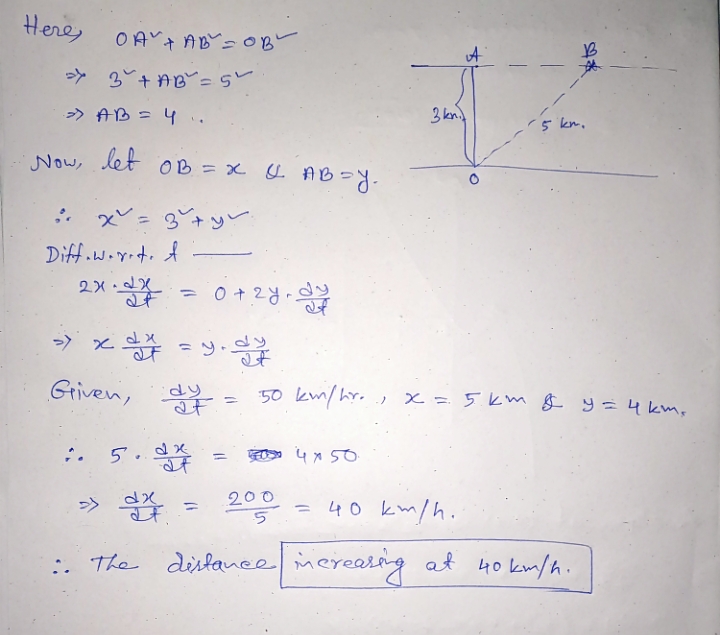 Here, OA² + AB² = OB²
⇒ 3² + AB² = 5²
⇒ AB = 4 .
A B
3 km.
5 km.
O
Now, let OB = x & AB = y.
∴ x² = 3² + y²
Diff. w.r.t. t —
2x · dx/dt = 0 + 2y · dy/dt
⇒ x dx/dt = y · dy/dt
Given, dy/dt = 50 km/hr. , x = 5 km & y = 4 km,
∴ 5 · dx/dt = 4 x 50
⇒ dx/dt = 200/5 = 40 km/h.
∴ The distance increasing at 40 km/h.